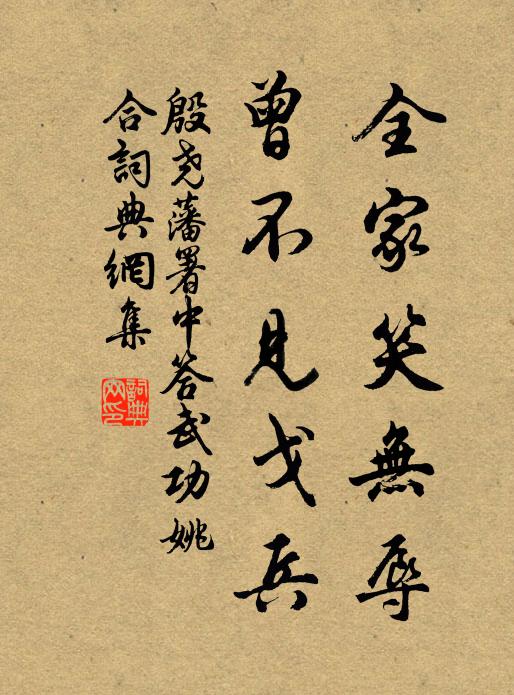 全家笑無辱
曾不見戈兵
殷堯藩署中答武功姚
合詞典網集
詞典
网印